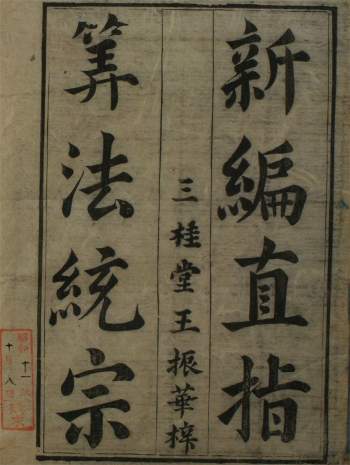 新編直指
三桂堂王振華梓
筭法統宗